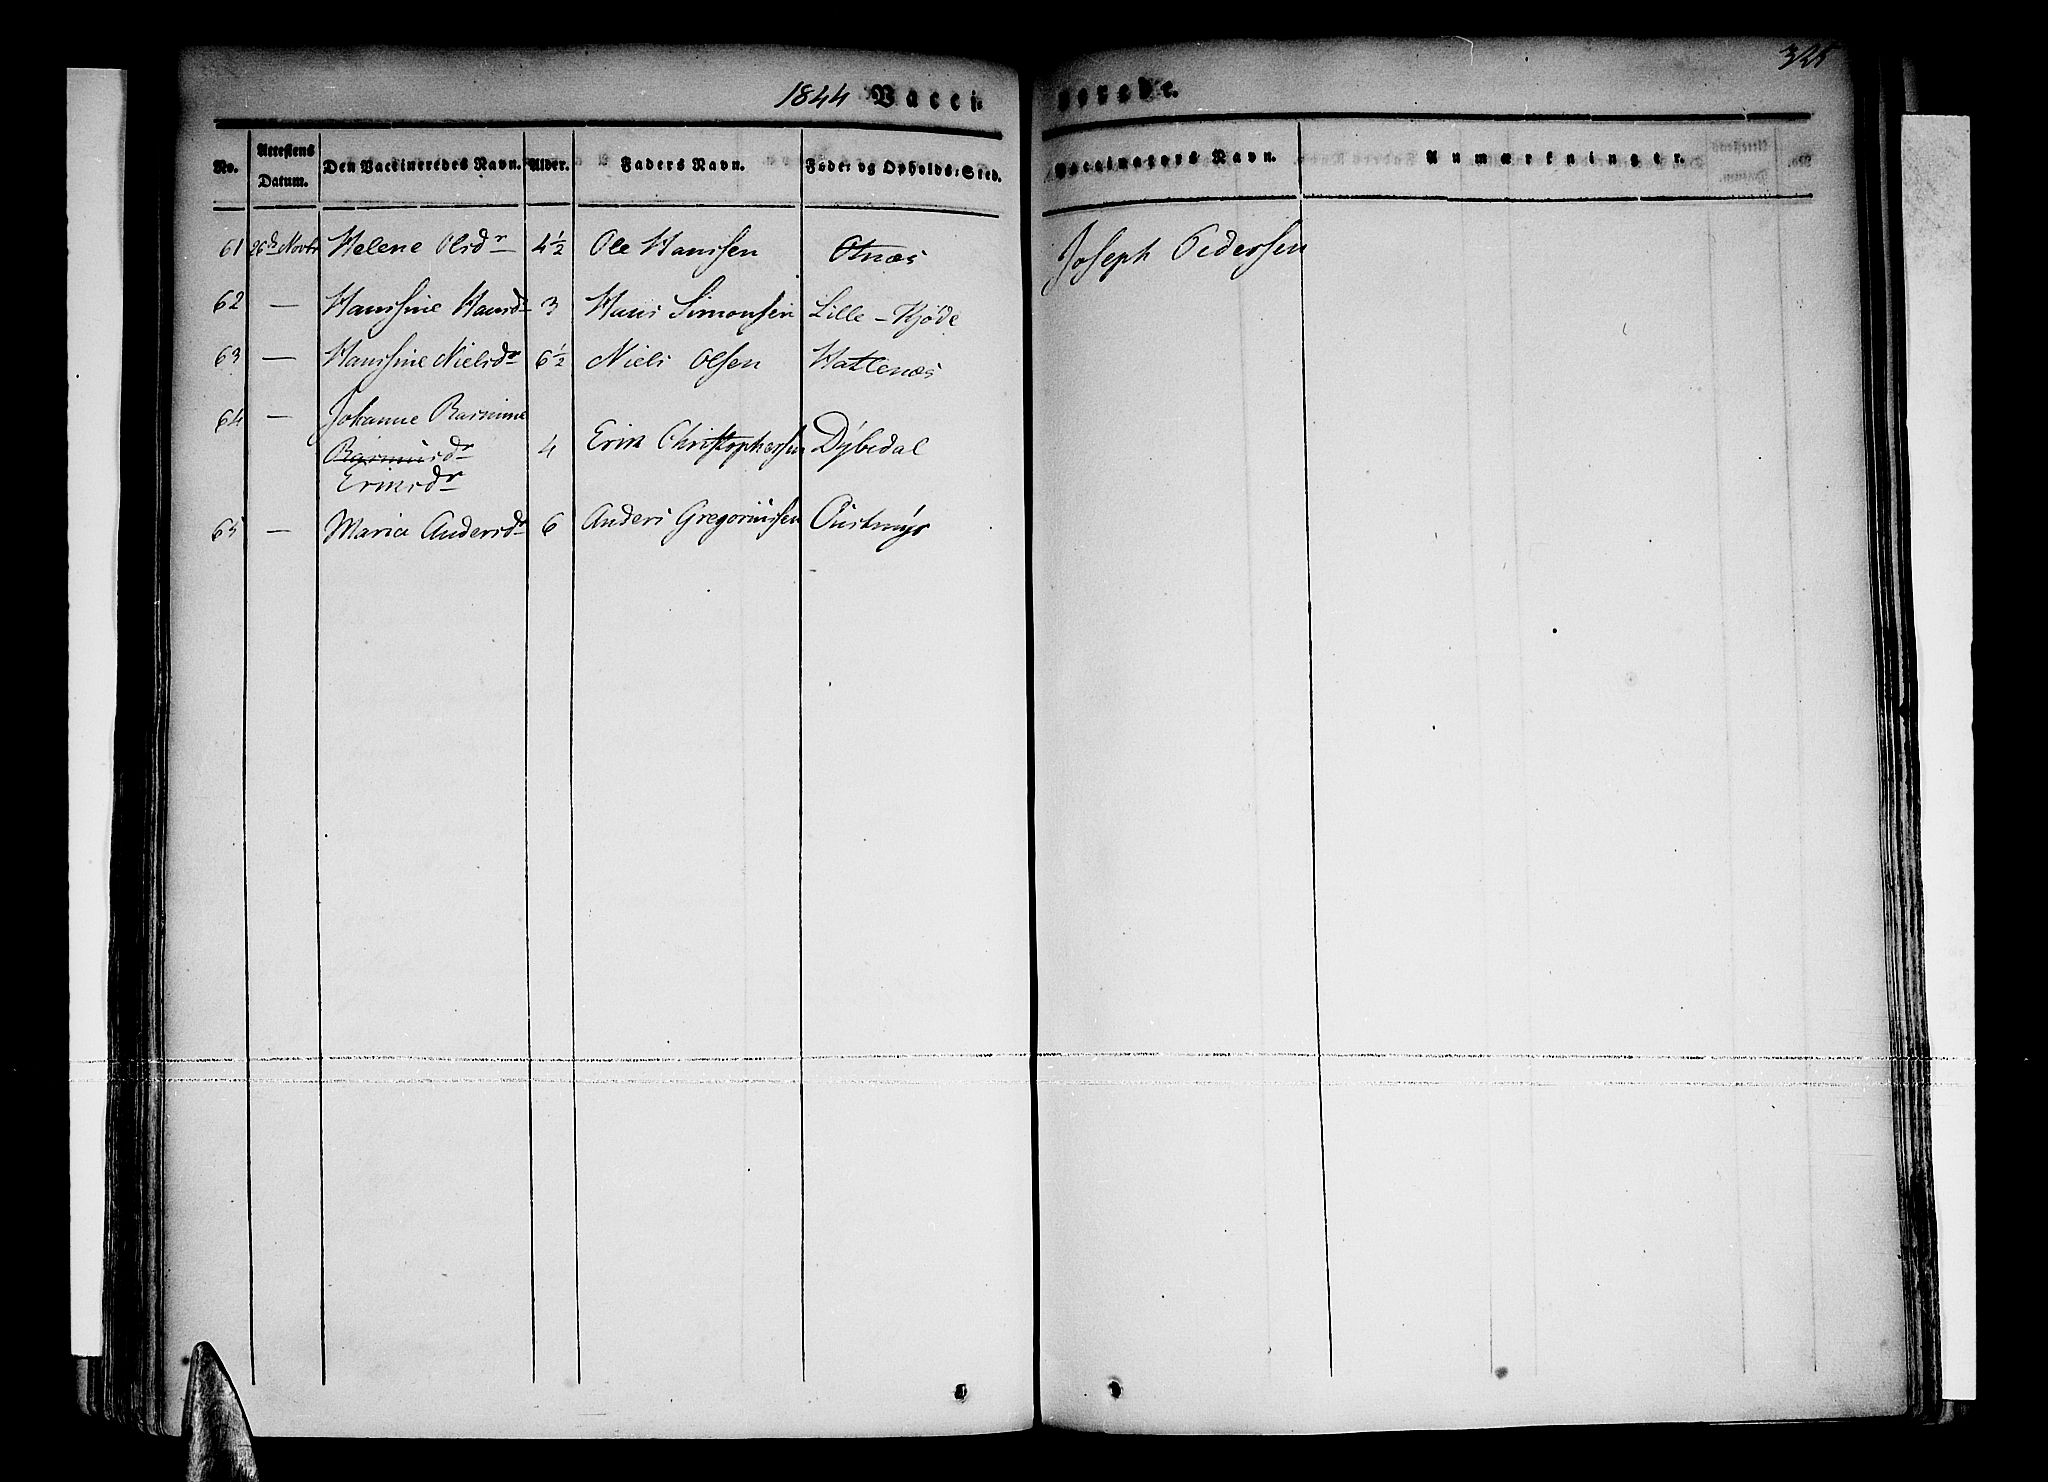 325
1844 Vacci-
nerede.
No. Attestens Datum. Den Vaccineredes Navn. Alder. Faders Navn. Føde- og Opholds-Sted. Vaccinators Navn. Anmærkninger.
61 26de Novbr Helene Olsdr 4½ Ole Hanssen Otnæs Joseph Pedersen
62 — Hanssine Hansdr 3 Hans Simonsen Lille-Kjøde
63 — Hanssine Nielsdr 6½ Niels Olsen Hatlenæs
64 — Johanne Rasmine
Rasmusdr 4 Erik Christophersen Dybedal
Eriksdr
65 — Maria Andersdr 6 Anders Gregoriussen